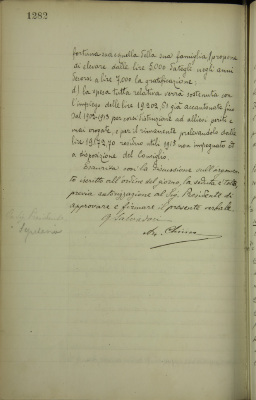 1282
fortuna sua e quella della sua famiglia, propone
di elevare dalle lire 5.000 dategli negli anni
scorsi a lire 7.000 la gratificazione;
d) la spesa tutta relativa verrà sostenuta con
l'impiego delle lire 19.202,51 già accantonate fin
dal 1912-1913 per
non erogate, e per il rimanente prelevandolo dalle
lire 19.172,70 residuo utile 1918 non impegnato ed
a disposizione del Consiglio.
Esaurita con la discussione sull'argomen-
to iscritto all'ordine del giorno, la seduta è tolta
previa autorizzazione al Sig. Presidente di
approvare e firmare il presente verbale.